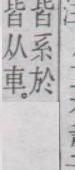 皆系於
皆从車。